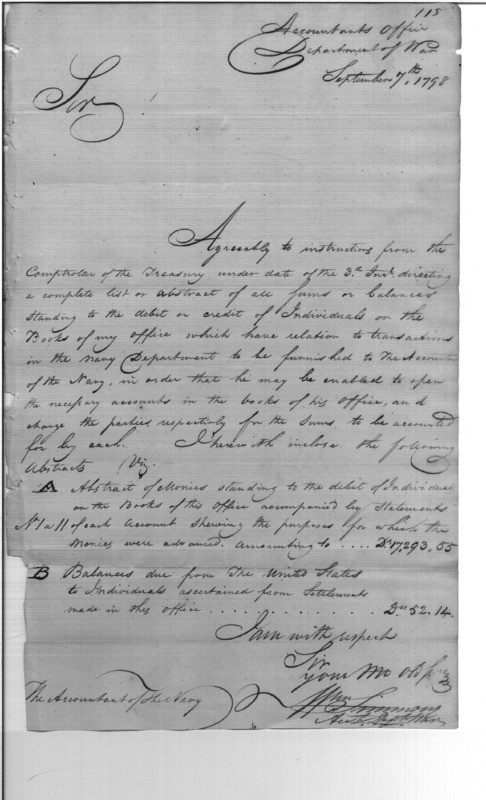 115
Accountants Office
Department of War
September 7th, 1798
Sir
Agreeably to instructions from the
Comptroller of the Treasury under date of the 3.d Inst. directing
a complete list or abstract of all sums or balances
standing to the debit or credit of Individuals on the
Books of my office which have relation to transactions
in the Navy Department to be furnished to The Accountant
of the Navy, in order that he may be enabled to open
the necessary accounts in the books of his office, and
charge the parties respectively for the sums to be accounted
for by each. I herewith inclose the following
Abstracts Viz
A Abstract of Monies standing to the debit of Individuals
on the Books of this Office accompanied by Statements
No 1 a 11 of each Account shewing the purposes for which the
monies were advanced. amounting to .... Ds 17,293.55
B Balances due from The United States
to Individuals ascertained from Settlements
made in this office . . . . . . . . . . . . Ds 52.14.
I am with respect
Sir
your Mo Ob Ser
The Accountant of the Navy
Wm Simmons
Acct. Dept War